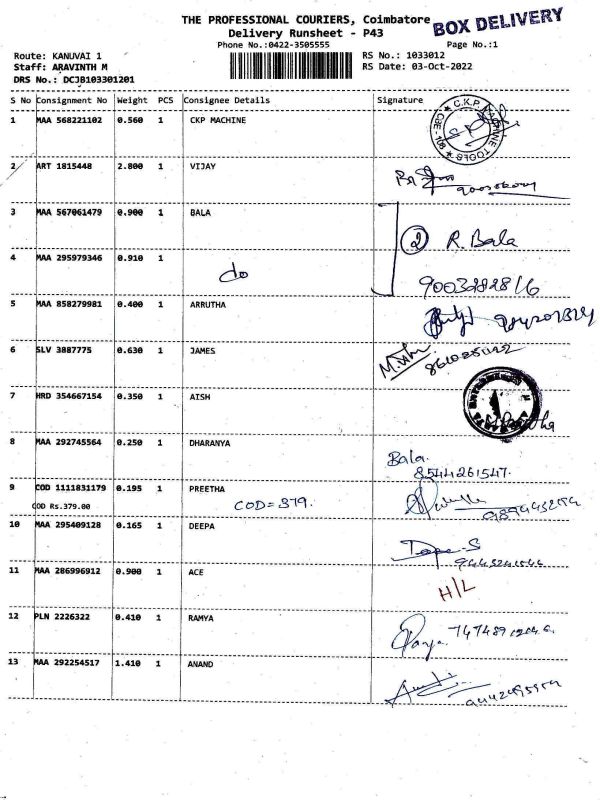 THE PROFESSIONAL COURIERS, Coimbatore
BOX DELIVERY
Delivery Runsheet - P43
Phone No.:0422-3505555
Page No.:1
Route: KANUVAI 1
RS No.: 1033012
Staff: ARAVINTH M
RS Date: 03-Oct-2022
DRS No.: DCJB103301201
S No Consignment No Weight PCS Consignee Details Signature
1 MAA 568221102 0.560 1 CKP MACHINE
C.K.P MACHINE TOOLS CBE-108
2 ART 1815448 2.800 1 VIJAY
3 MAA 567061479 0.900 1 BALA
2 R. Bala
4 MAA 295979346 0.910 1
do
9003282816
5 MAA 858279981 0.400 1 ARRUTHA
6 SLV 3887775 0.630 1 JAMES
7 HRD 354667154 0.350 1 AISH
8 MAA 292745564 0.250 1 DHARANYA
Bala.
8544261547.
9 COD 1111831179 0.195 1 PREETHA
COD Rs.379.00
COD=379.
9894432594
10 MAA 295409128 0.165 1 DEEPA
11 MAA 286996912 0.900 1 ACE
H/L
12 PLN 2226322 0.410 1 RAMYA
13 MAA 292254517 1.410 1 ANAND